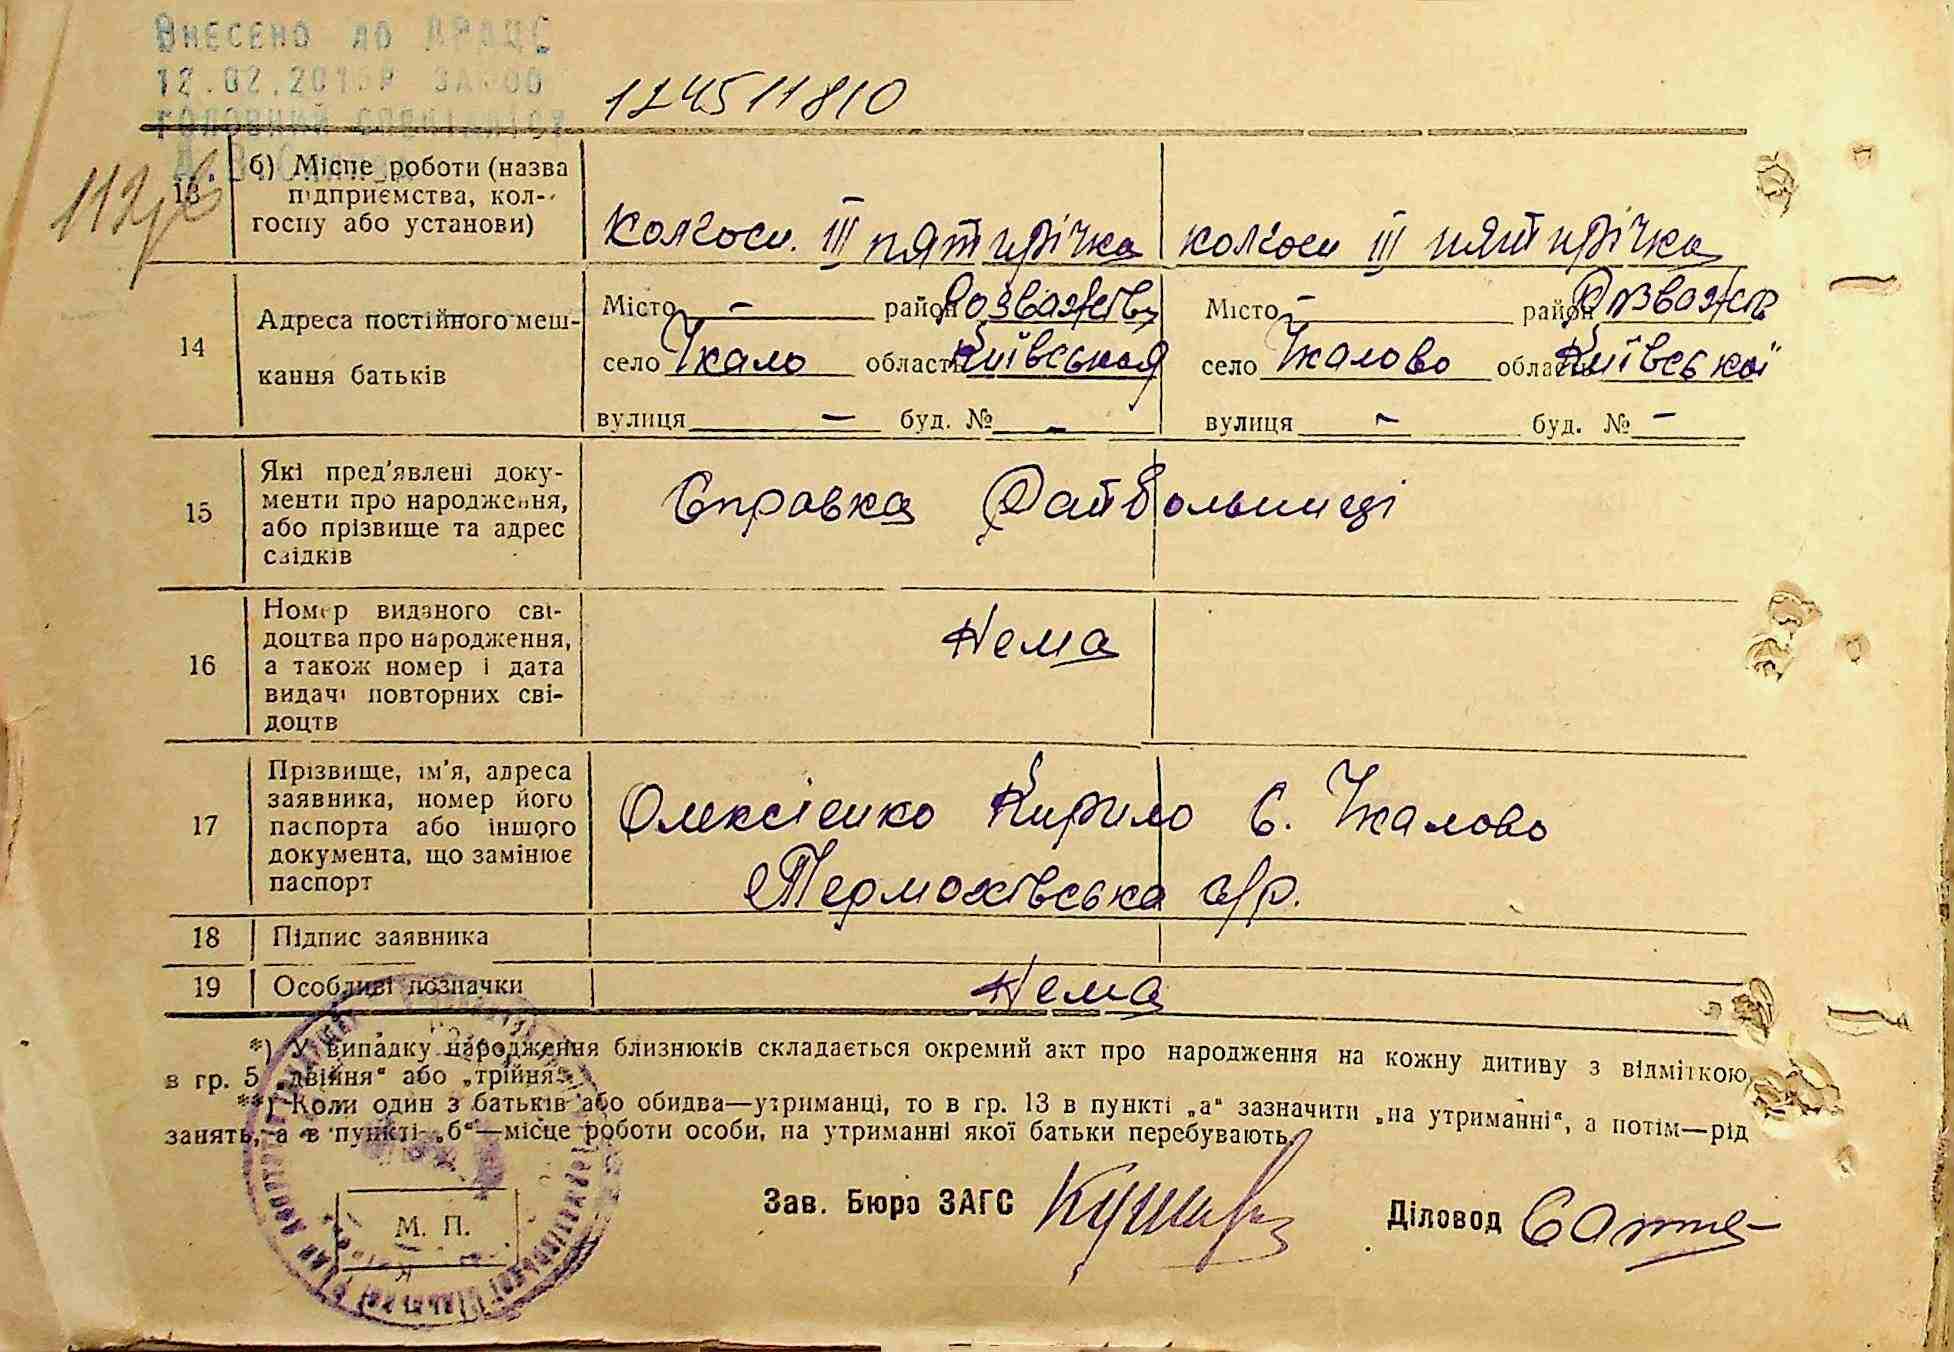 Внесено до ДРАЦС
12.02.201
головний спеціаліст
124511810
13
б) Місце роботи (назва
підприємства, кол-
госпу або установи)
колгосп. III пятирічка
колгосп III пятирічка
14
Адреса постійного меш-
кання батьків
Місто - район Розважівs
село Чкало область Київськоя
вулиця - буд. № -
Місто - район Розважів
село Чкалово область Київської
вулиця - буд. № -
15
Які пред'явлені доку-
менти про народження,
або прізвище та адрес
свідків
Справка Райбольниці
16
Номер виданого сві-
доцтва про народження,
а також номер і дата
видачі повторних сві-
доцтв
Нема
17
Прізвище, ім'я, адреса
заявника, номер його
паспорта або іншого
документа, що замінює
паспорт
Олексієнко Кирило С. Чкалово
Термохівська с/р.
18
Підпис заявника
19
Особливі позначки
Нема
*) У випадку народження близнюків складається окремий акт про народження на кожну дитину з відміткою
в гр. 5 „двійня“ або „трійня“.
**) Коли один з батьків або обидва—утриманці, то в гр. 13 в пункті „а“ зазначити „на утриманні“, а потім—рід
занять, а в пункті „б“—місце роботи особи, на утриманні якої батьки перебувають.
М. П.
Зав. Бюро ЗАГС
Діловод